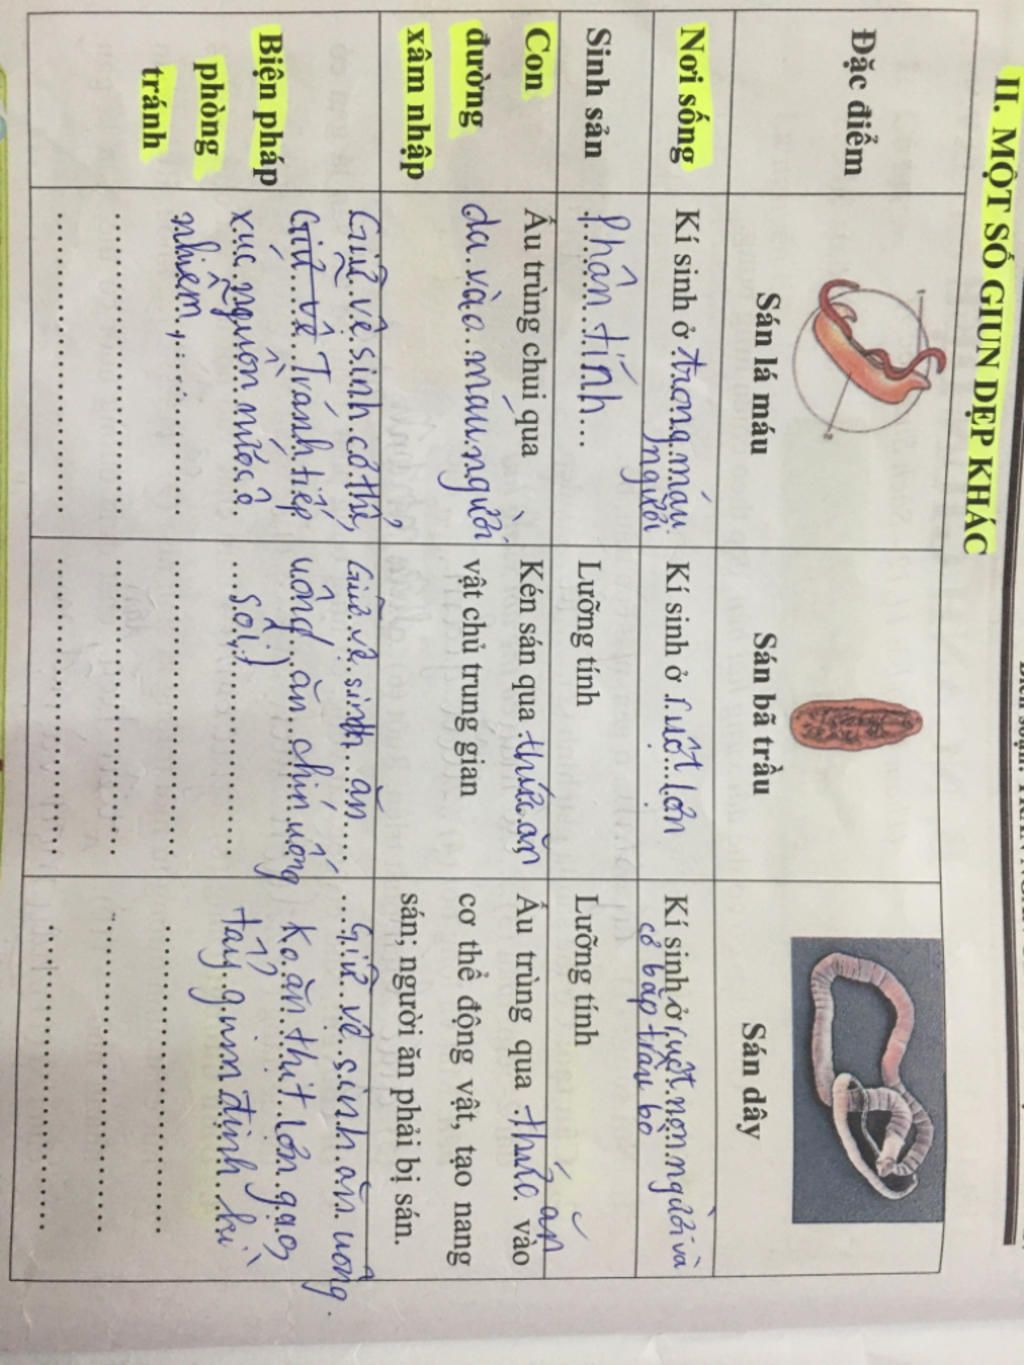 II. MỘT SỐ GIUN DẸP KHÁC
Đặc điểm
Sán lá máu
Sán bã trầu
Sán dây
Nơi sống
Kí sinh ở trong máu
người
Kí sinh ở ruột lợn
Kí sinh ở ruột non người và
cơ bắp trâu bò
Sinh sản
Phân tính...
Lưỡng tính
Lưỡng tính
Con
đường
xâm nhập
Ấu trùng chui qua
da vào máu người
Kén sán qua thức ăn
vật chủ trung gian
Ấu trùng qua thức ăn vào
cơ thể động vật, tạo nang
sán; người ăn phải bị sán.
Biện pháp
phòng
tránh
Giữ vệ sinh cơ thể,
Giữ vệ Tránh tiếp
xúc nguồn nước ô
nhiễm,
Giữ vệ sinh ăn
uống, ăn chín uống
sôi,
Giữ vệ sinh ăn uống.
Ko ăn thịt lợn gạo,
tẩy giun định kì